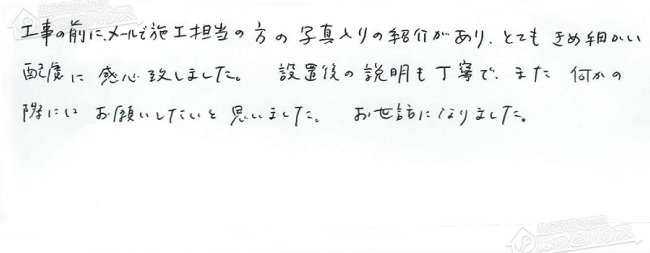 工事の前に、メールで施工担当の方の写真入りの紹介があり、とてもきめ細かい
配慮に感心致しました。 設置後の説明も丁寧で、また何かの
際には お願いしたいと思いました。 お世話になりました。